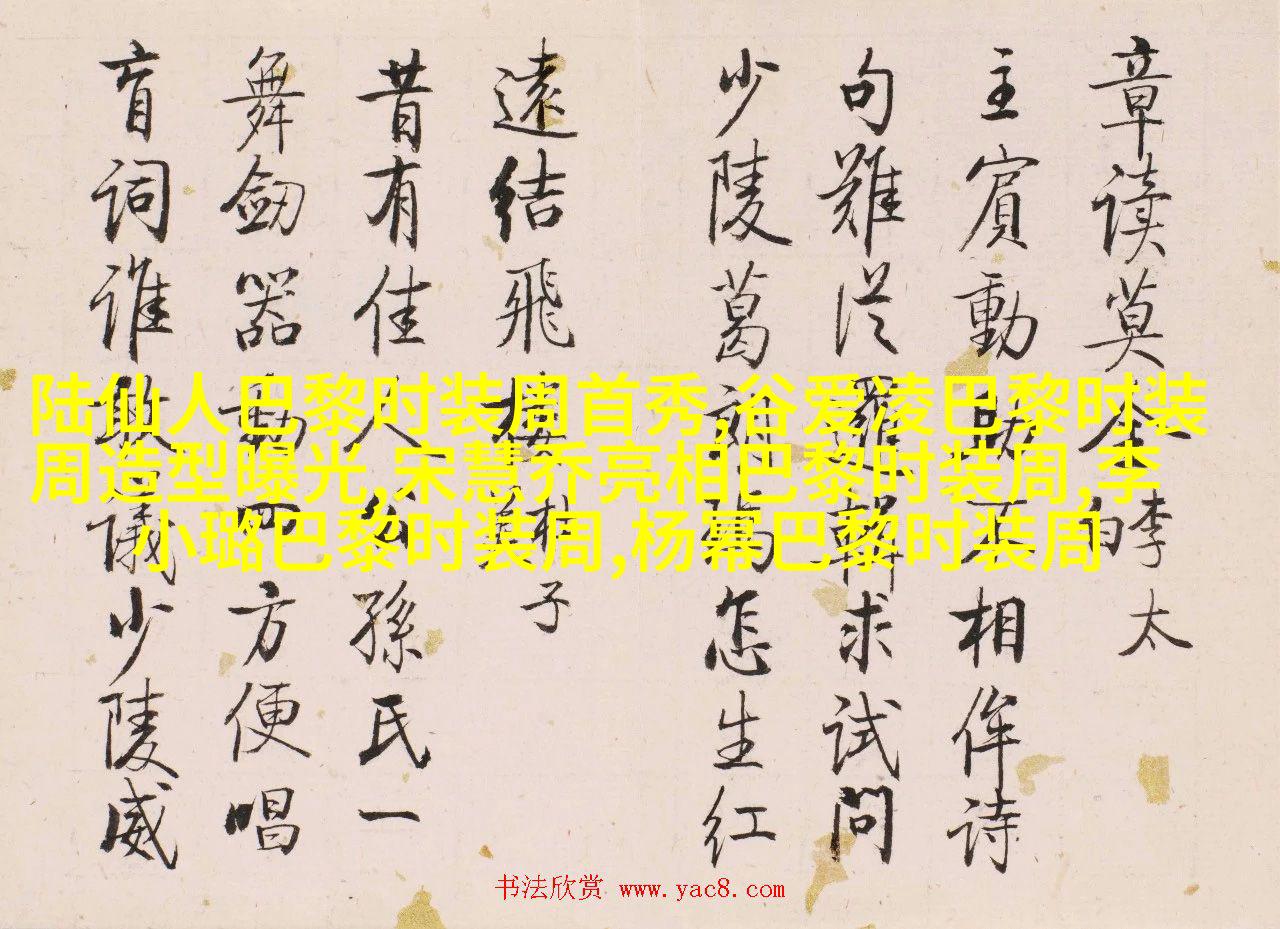 陆仙人巴黎时装周首秀,谷爱凌巴黎时装
周造型曝光,宋慧乔亮相巴黎时装周,李
小璐巴黎时装周,杨幂巴黎时装周
章读莫全李太白
主賓動相侔詩
句難従求試問
少陵葛怎生红
遠結飛樓子
昔有佳人公孫氏一
舞劒器動四方便唱
盲词谁敢議少陵威
书法欣赏 www.yac8.com